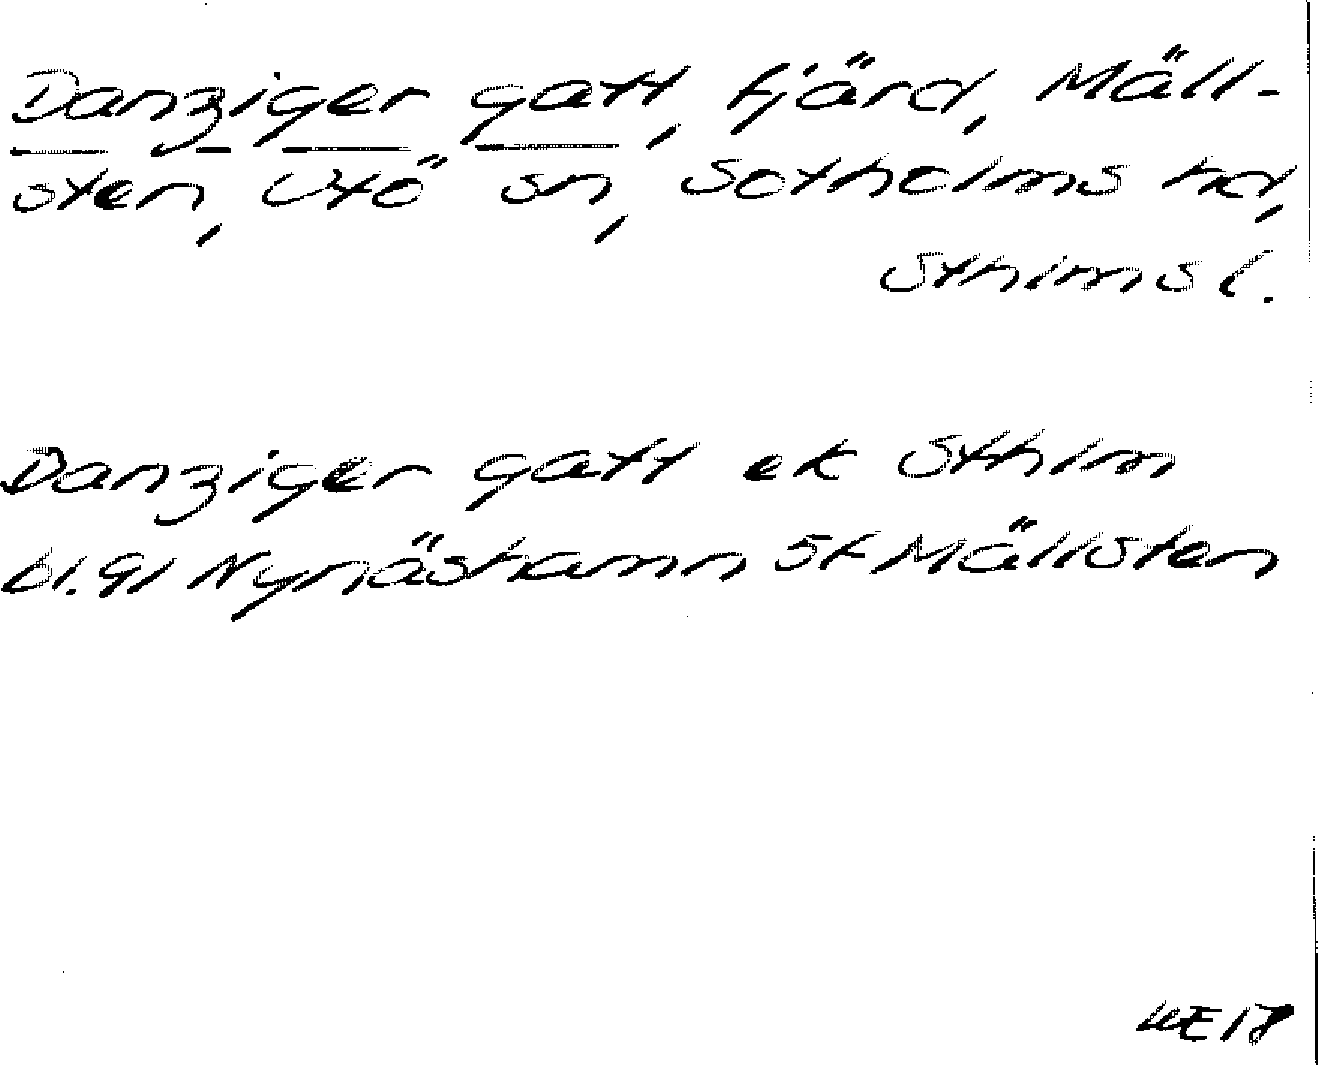 Danziger gatt, fjärd, Mäll-
sten, Utö sn, Sotholms hd,
Sthlms l.
Danziger gatt ek Sthlm
bl. 91 Nynäshamn SF Mällsten
WE 18